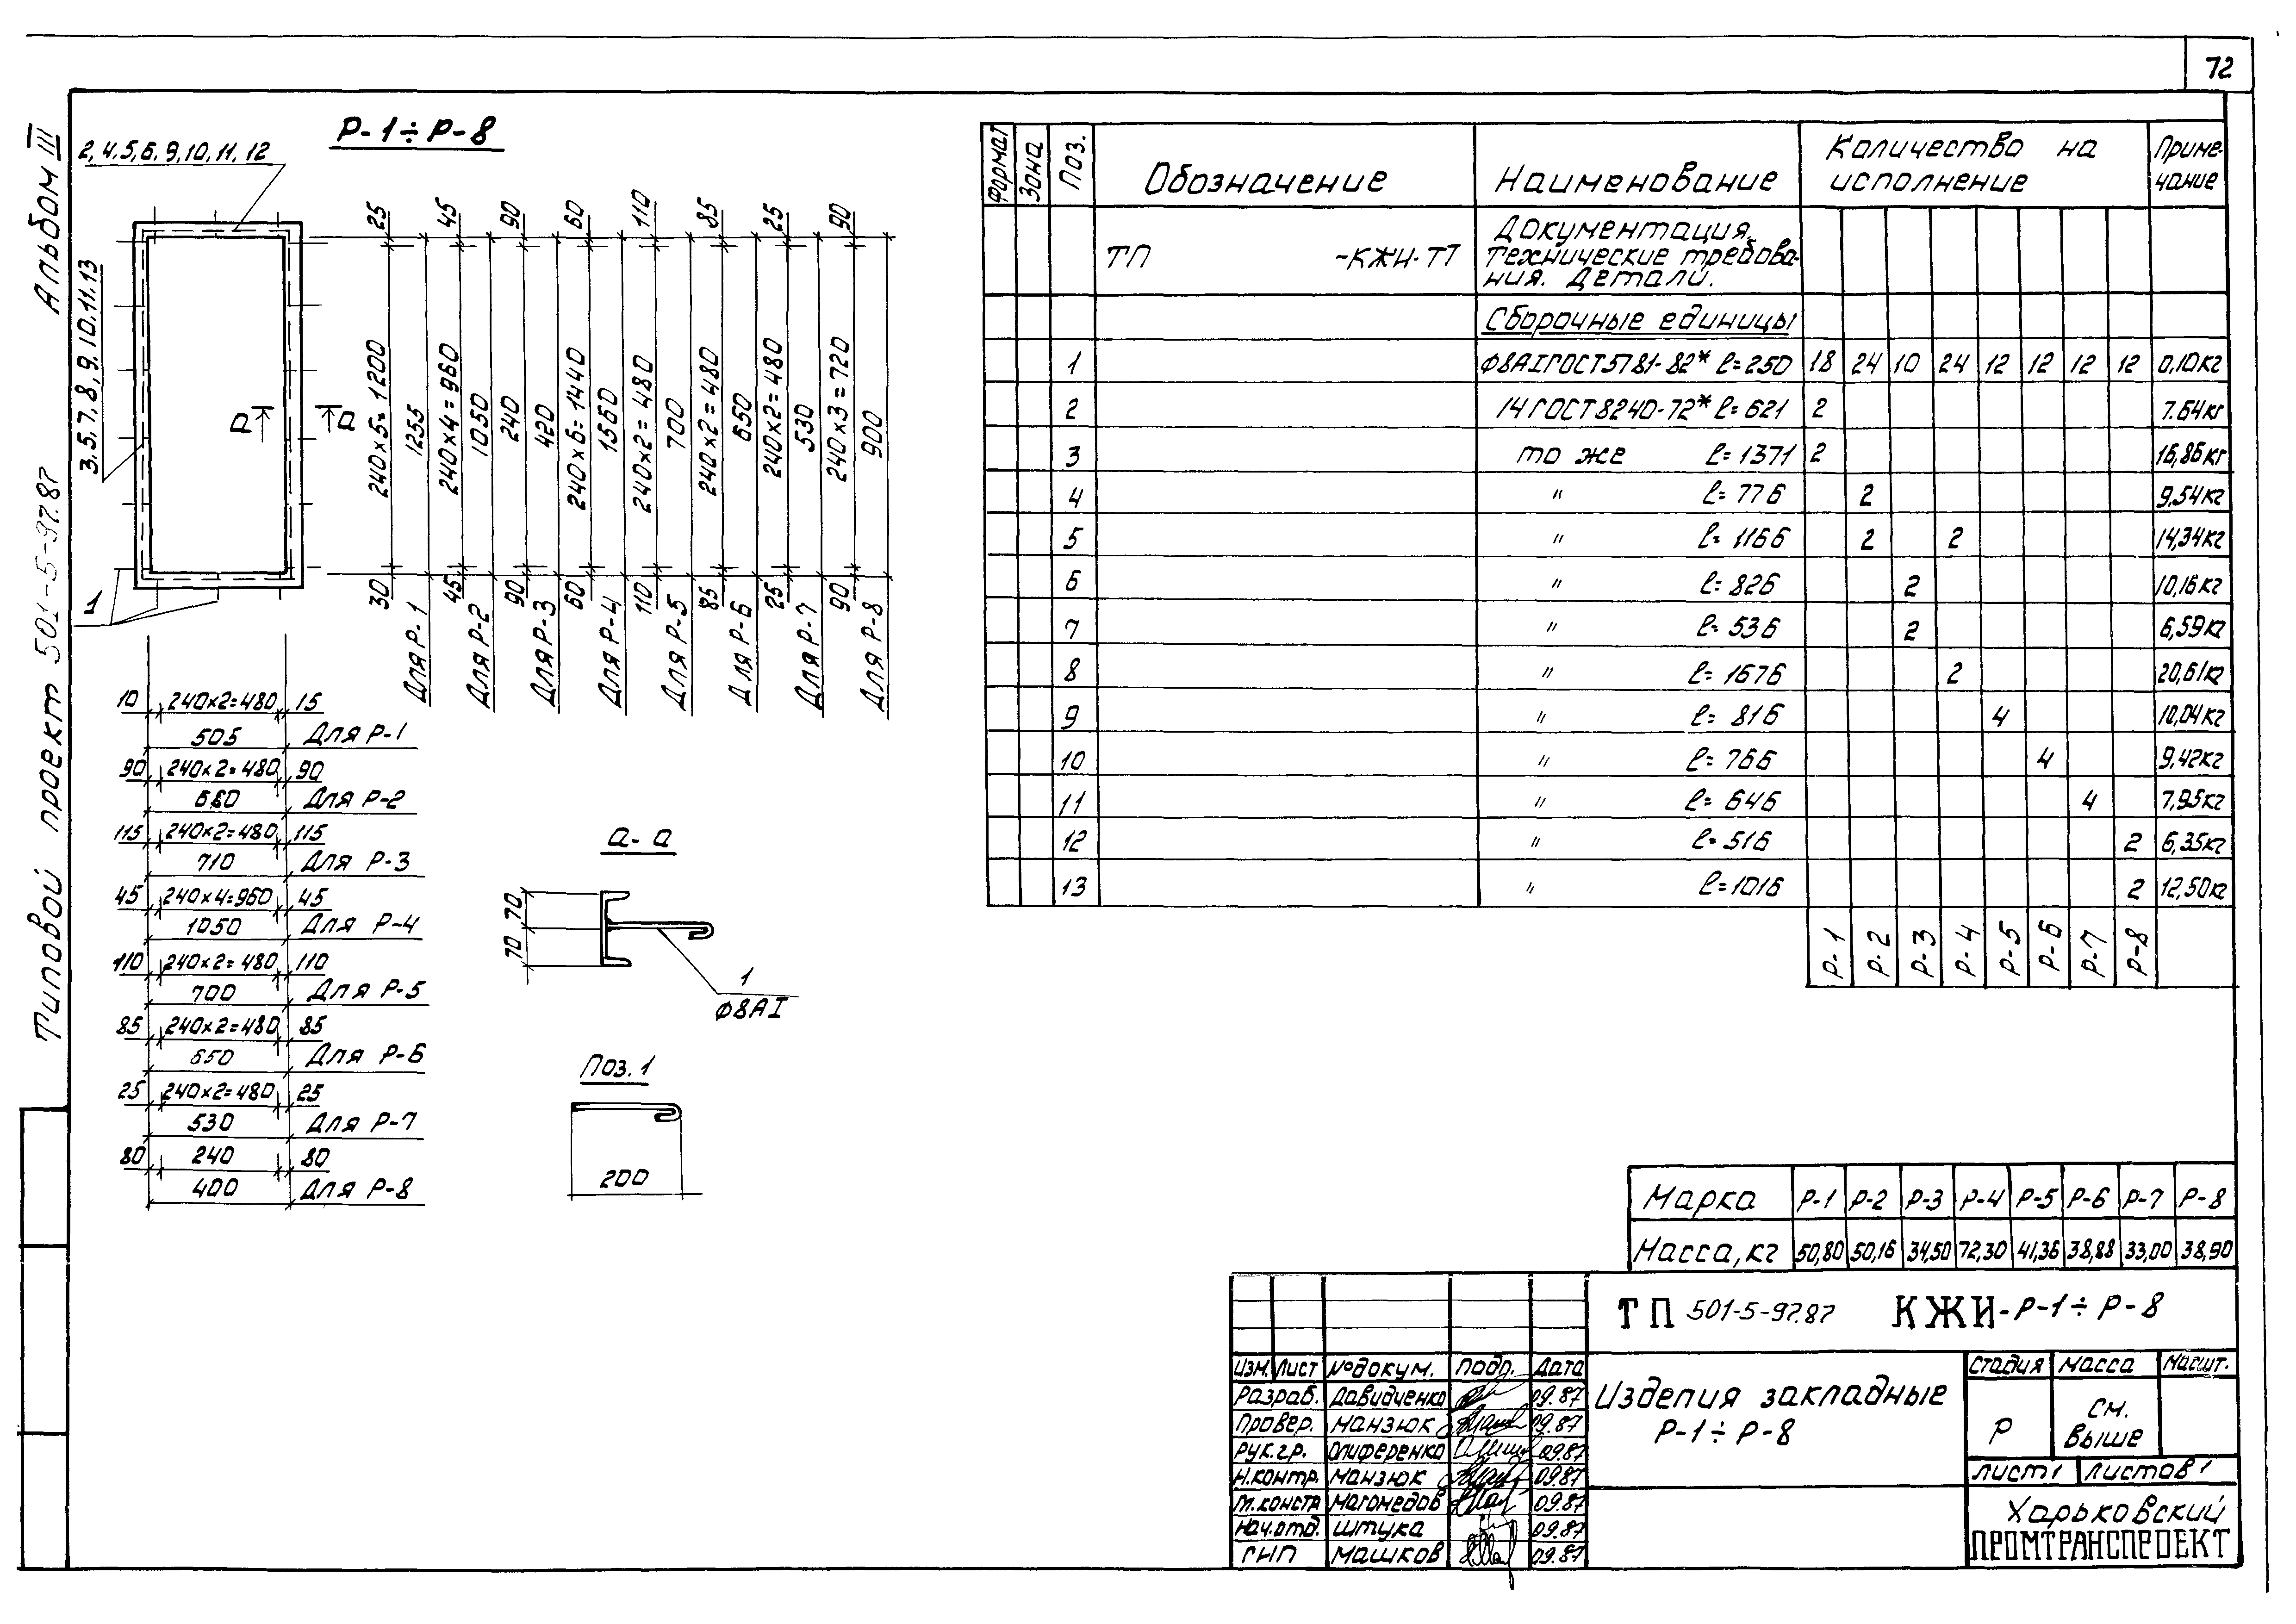 72
Альбом III
Типовой проект 501-5-97.87
Р-1÷Р-8
2,4.5,6.9,10,11.12
3,5,7,8,9.10.11.13
1
а
а
25
240×5=1200
30
1255
Для Р-1
45
240×4=960
45
1050
Для Р-2
90
240
90
420
Для Р-3
60
240×6=1440
60
1560
Для Р-4
110
240×2=480
110
700
Для Р-5
85
240×2=480
85
650
Для Р-6
25
240×2=480
25
530
Для Р-7
90
240×3=720
90
900
Для Р-8
10 240×2=480 15
505 Для Р-1
90 240×2=480 90
660 Для Р-2
115 240×2=480 115
710 Для Р-3
45 240×4=960 45
1050 Для Р-4
110 240×2=480 110
700 Для Р-5
85 240×2=480 85
650 Для Р-6
25 240×2=480 25
530 Для Р-7
80 240 80
400 Для Р-8
а-а
70
70
1
Ф8АI
Поз.1
200
Формат Зона Поз. Обозначение Наименование Количество на исполнение Примечание
ТП -КЖИ-ТТ Документация.
Технические требова-
ния. Детали.
Сборочные единицы
1 Ф8АIГОСТ5781-82* ℓ=250 18 24 10 24 12 12 12 12 0,10кг
2 14ГОСТ8240-72* ℓ=621 2 7.64кг
3 то же ℓ=1371 2 16,86кг
4 " ℓ=776 2 9,54кг
5 " ℓ=1166 2 2 14,34кг
6 " ℓ=826 2 10,16кг
7 " ℓ=536 2 6,59кг
8 " ℓ=1676 2 20,61кг
9 " ℓ=816 4 10,04кг
10 " ℓ=766 4 9,42кг
11 " ℓ=646 4 7,95кг
12 " ℓ=516 2 6,35кг
13 " ℓ=1016 2 12,50кг
Р-1 Р-2 Р-3 Р-4 Р-5 Р-6 Р-7 Р-8
Марка Р-1 Р-2 Р-3 Р-4 Р-5 Р-6 Р-7 Р-8
Масса,кг 50,80 50,16 34,50 72,30 41,36 38,88 33,00 38,90
ТП 501-5-97.87 КЖИ-Р-1÷Р-8
Изм. Лист №докум. Подп. Дата
Разраб. Давидченко 09.87
Провер. Манзюк 09.87
Рук.гр. Олиференко 09.87
Н.контр. Манзюк 09.87
Гл.констр Магомедов 09.87
Нач.отд. Штука 09.87
ГИП Машков 09.87
Изделия закладные
Р-1÷Р-8
Стадия Масса Масшт.
Р См. выше
Лист1 Листов1
Харьковский
ПРОМТРАНСПРОЕКТ